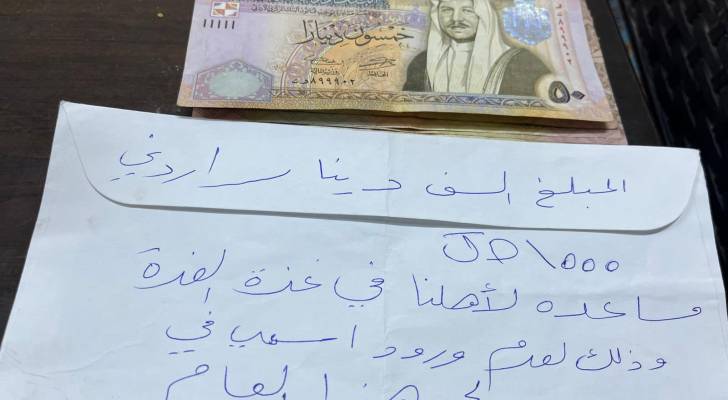 خمسون دينارا
٨٩٩٩٠٢
٨٩٩٩٠٢
٥٠
المبلغ الف دينار اردني
JD ١٠٠٠
مساعده لأهلنا في غزة العزة
وذلك لعدم ورود اسمي في
هذا العام